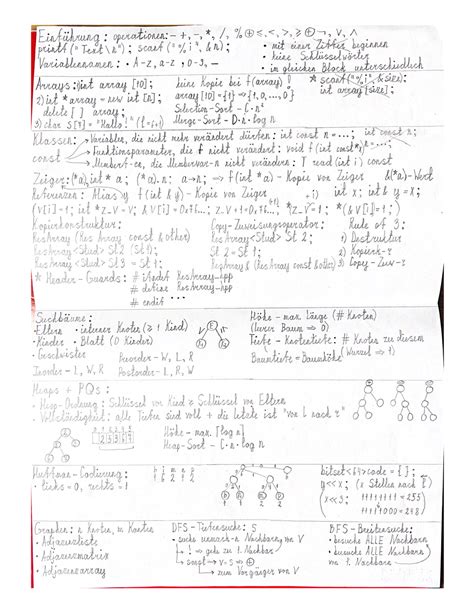 Einführung: operationen: -+, -, *, /, % ⊕ ≤, <, >, ≥ ⊕ ¬, ∨, ∧
printf("Text\n"); scanf("%i", &n);
• mit einer Ziffer beginnen
• keine Schlüsselwörter
Variablennamen: • A-Z, a-z, 0-9, -
• im gleichen Block unterschiedlich
Arrays: 1) int array [10];
keine Kopie bei f(array)!
* scanf("%i", &size);
int array[size];
2) int * array = new int [n];
array [10] = {1} => {1, 0, ..., 0}
delete [] array;
Selection-Sort - C·n²
Merge-Sort - D·n·log n
3) char S[7] = "Hallo!"
Klassen: • Variablen, die nicht mehr verändert dürfen: int const n = ...;
const • Funktionsparameter, die f nicht verändert: void f(int const*x) = ...;
• Member-f-ce, die Membervar-n nicht verändern: T read (int i) const
Zeiger: (*a), int * a; (*a).n: a->n; => f(int *a) - Kopie von Zeiger
&(*a) - Wert
Referenzen: Alias y f(int & y) - Kopie von Zeiger
int x; int & y = x;
(V[i]=1; int *z_V = V; & V[i] = 0x76...; V[i] = 0x76...+i; *z_V = 1; *(& V[i]) = 1;
Kopierkonstruktor:
Copy-Zuweisungsoperator:
Rule of 3:
ResArray (ResArray const & other)
ResArray<Stud> St 2;
1) Destruktor
ResArray<Stud> St 2 (St 1);
St 2 = St 1;
2) Kopierk-r
ResArray<Stud> St 2 = St 1;
ResArray & (ResArray const & other)
3) Copy-Zuw-r
* Header-Guards: # ifndef ResArray_hpp
# define ResArray_hpp
# endif ...
Suchbäume:
Höhe - max. Länge (# Knoten)
• Eltern - interner Knoten (≥ 1 Kind)
(leerer Baum => 0)
• Kinder • Blatt (0 Kinder)
Tiefe - Knotentiefe: # Knoten zu diesem
(Wurzel => 1)
• Geschwister
Preorder - W, L, R
Baumtiefe = Baumhöhe
Inorder - L, W, R
Postorder - L, R, W
Heaps + PQs:
• Heap-Ordnung: Schlüssel von Kind ≥ Schlüssel von Eltern
• Vollständigkeit: alle Tiefen sind voll + die letzte ist "von l nach r"
Höhe - max. [log n]
Heap-Sort - C·n·log n
Huffman-Codierung:
• links = 0, rechts = 1
bitset<64> code = {};
y << x; (x Stellen nach
11111111 = 255
x << 3:
11111000 = 248
Graphen: n Knoten, m Kanten
• Adjazenzliste
• Adjazenzmatrix
• Adjazenzarray
DFS - Tiefensuche: S
• suche unmark-n Nachbarn von V
+ ! gehe zu 1. Nachbarn
sonst -> V = S => ⊕
-> zum Vorgänger von V
BFS - Breitensuche:
• besuche ALLE Nachbarn
• besuche ALLE Nachbarn
von 1. Nachbarn